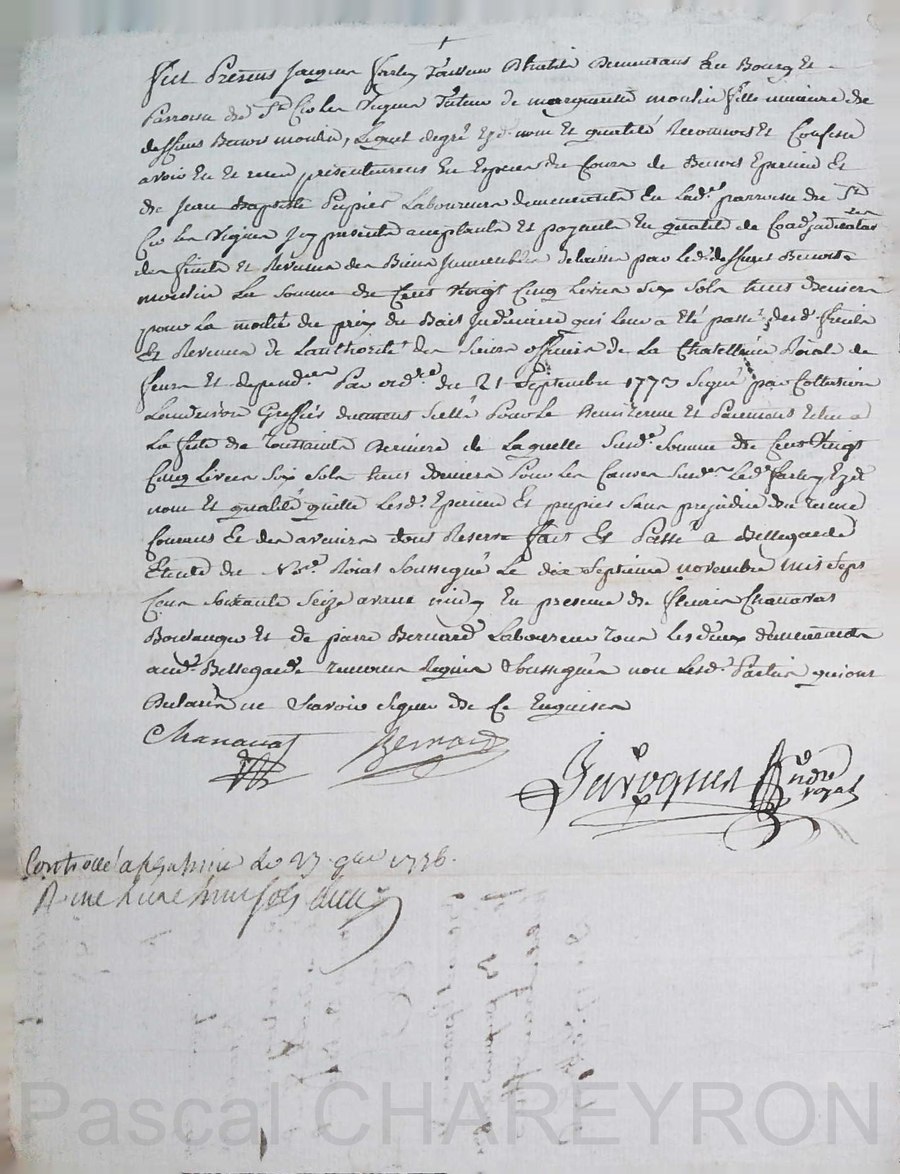 Fut Présens Jacques farley Tailleur D'habit Demeurans au Bourg Et
Parroisse de St Cir les Vignes Tuteur de margueritte moulin fille mineure de
deffunt Benoit moulin, Lequel degré Ezd. nom Et qualité Reconnoit Et Confesse
avoir Eu Et recu présentement En Espece de Cours de Benoit Epercieu Et
de Jean Baptiste Pupier Laboureurs demeurants En Lade. parroisse de St
Cir les Vignes Icy présents acceptants Et payants En qualité de Coadjudicataires
des fruits Et Revenus des Biens Immeubles délaissés par led. deffunt Benoit
moulin La Somme de Cent Vingt Cinq Livres Six Sols trois Deniers
pour La moitié du prix du Bail Judiciaire qui leur a été passé desd. fruits
Et Revenus de Lauthorité des Sieurs officiers de La Chatellenie Roial de
feurs Et dépend.ces Par ord.ce du 21 Septembre 1773 Signé par Collation
Greffier duement Scellé Pour Le Terme Et Paiement Echu a
La feste de Toussaints Derniere de Laquelle Susd. Somme de Cent Vingt
Cinq Livres Six Sols trois Deniers Pour Les Causes Susd.es Led. farley Ezd.
nom Et qualité quitte Lesd. Epercieu Et pupier Sans préjudice du terme
Courant Et des avenirs dont Reserve fait Et Passé a Bellegarde
Etude du No.re Roial Soussigné Le dix Septieme novembre mil Sept
Cens Soixante Seize avant midy En présence de fleurie Chanavat
Boulanger Et de pierre Bernard Laboureur tous Les deux demeurants
aud. Bellegarde temoins Requis Soussignés non Lesd. Parties qui ont
Déclaré ne Savoir Signer de Ce Enquises
Chanavat Bernard
Javogues Ndre royal
Controllé a le 27 9bre 1776.
R. une livre huit sols
Pascal CHAREYRON